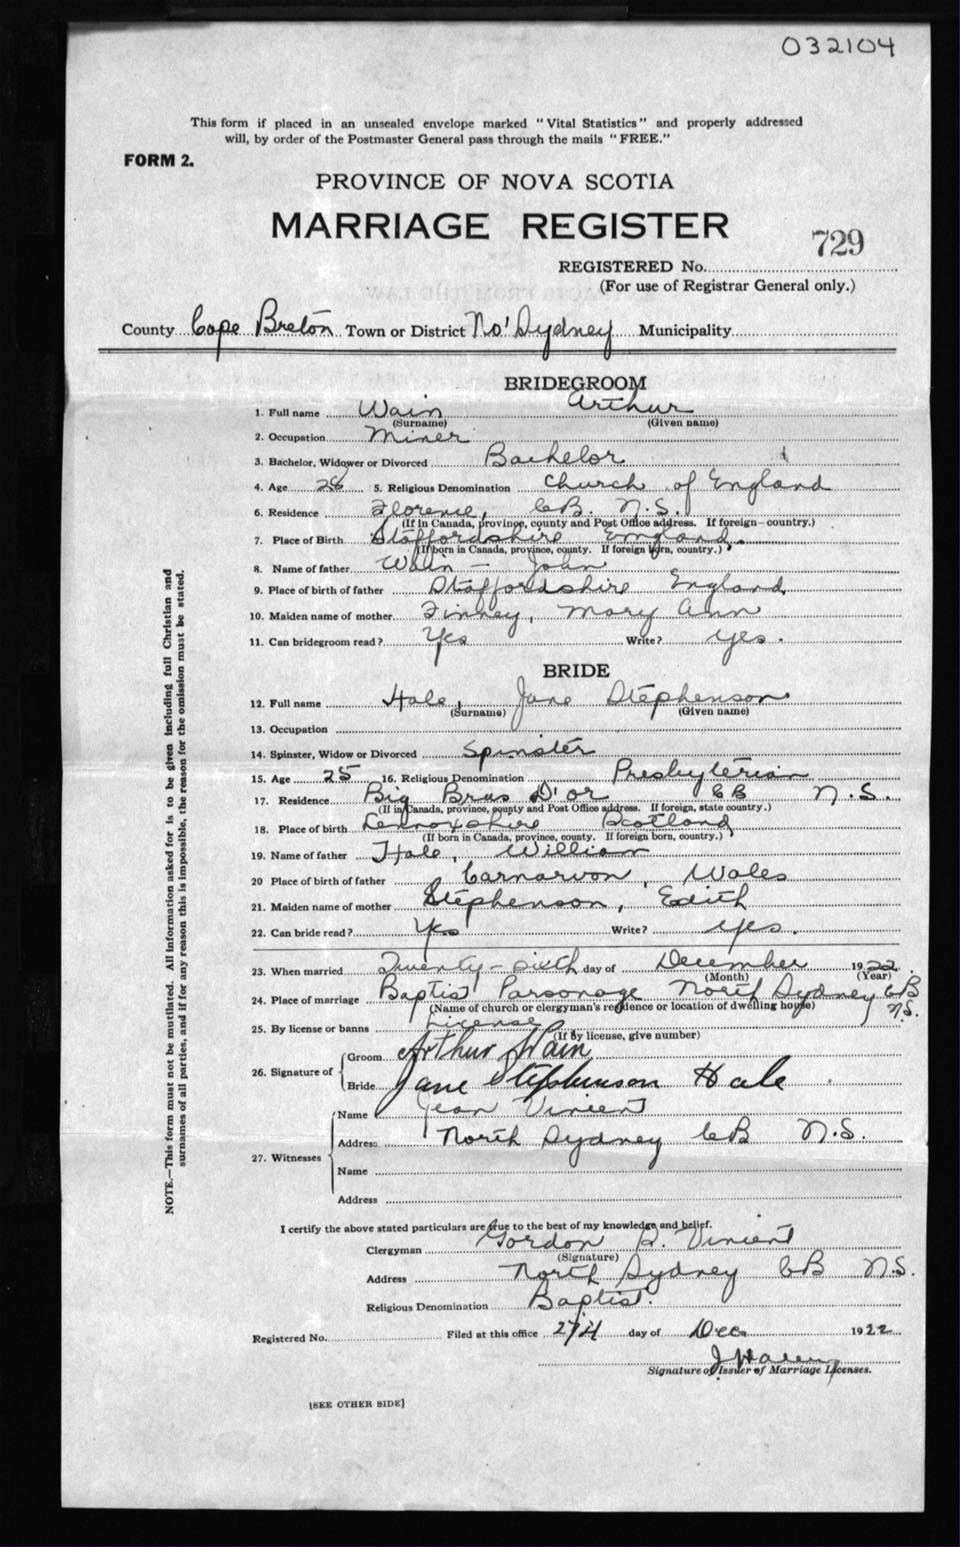 032104
This form if placed in an unsealed envelope marked "Vital Statistics" and properly addressed
will, by order of the Postmaster General pass through the mails "FREE."
FORM 2.
PROVINCE OF NOVA SCOTIA
MARRIAGE REGISTER
729
REGISTERED No.
(For use of Registrar General only.)
County Cape Breton Town or District No' Sydney Municipality
BRIDEGROOM
1. Full name Wain Arthur
(Surname) (Given name)
2. Occupation Miner
3. Bachelor, Widower or Divorced Bachelor
4. Age 28 5. Religious Denomination Church of England
6. Residence Florence, CB. N.S.
(If in Canada, province, county and Post Office address. If foreign—country.)
7. Place of Birth Staffordshire England.
(If born in Canada, province, county. If foreign born, country.)
8. Name of father Wain — John
9. Place of birth of father Staffordshire England
10. Maiden name of mother Finney, Mary Ann
11. Can bridegroom read? Yes Write? yes.
BRIDE
12. Full name Hale, Jane Stephenson
(Surname) (Given name)
13. Occupation
14. Spinster, Widow or Divorced Spinster
15. Age 25 16. Religious Denomination Presbyterian
17. Residence Big Bras D'or CB N.S.
(If in Canada, province, county and Post Office address. If foreign, state country.)
18. Place of birth Lennoxshire Scotland
(If born in Canada, province, county. If foreign born, country.)
19. Name of father Hale, William
20 Place of birth of father Carnarvon, Wales
21. Maiden name of mother Stephenson, Edith
22. Can bride read? Yes Write? yes.
23. When married Twenty-sixth day of December 1922.
(Month) (Year)
24. Place of marriage Baptist Parsonage North Sydney CB
N.S.
(Name of church or clergyman's residence or location of dwelling house)
25. By license or banns License
(If by license, give number)
26. Signature of Groom Arthur Wain
Bride Jane Stephenson Hale
27. Witnesses Name Jean Vincent
Address North Sydney CB N.S.
Name
Address
I certify the above stated particulars are true to the best of my knowledge and belief.
Clergyman Gordon Vincent
(Signature)
Address North Sydney CB N.S.
Religious Denomination Baptist.
Registered No. Filed at this office 27th day of Dec 1922
Signature of Issuer of Marriage Licenses.
[SEE OTHER SIDE]
NOTE.—This form must not be mutilated. All information asked for is to be given including full Christian and
surnames of all parties, and if for any reason this is impossible, the reason for the omission must be stated.